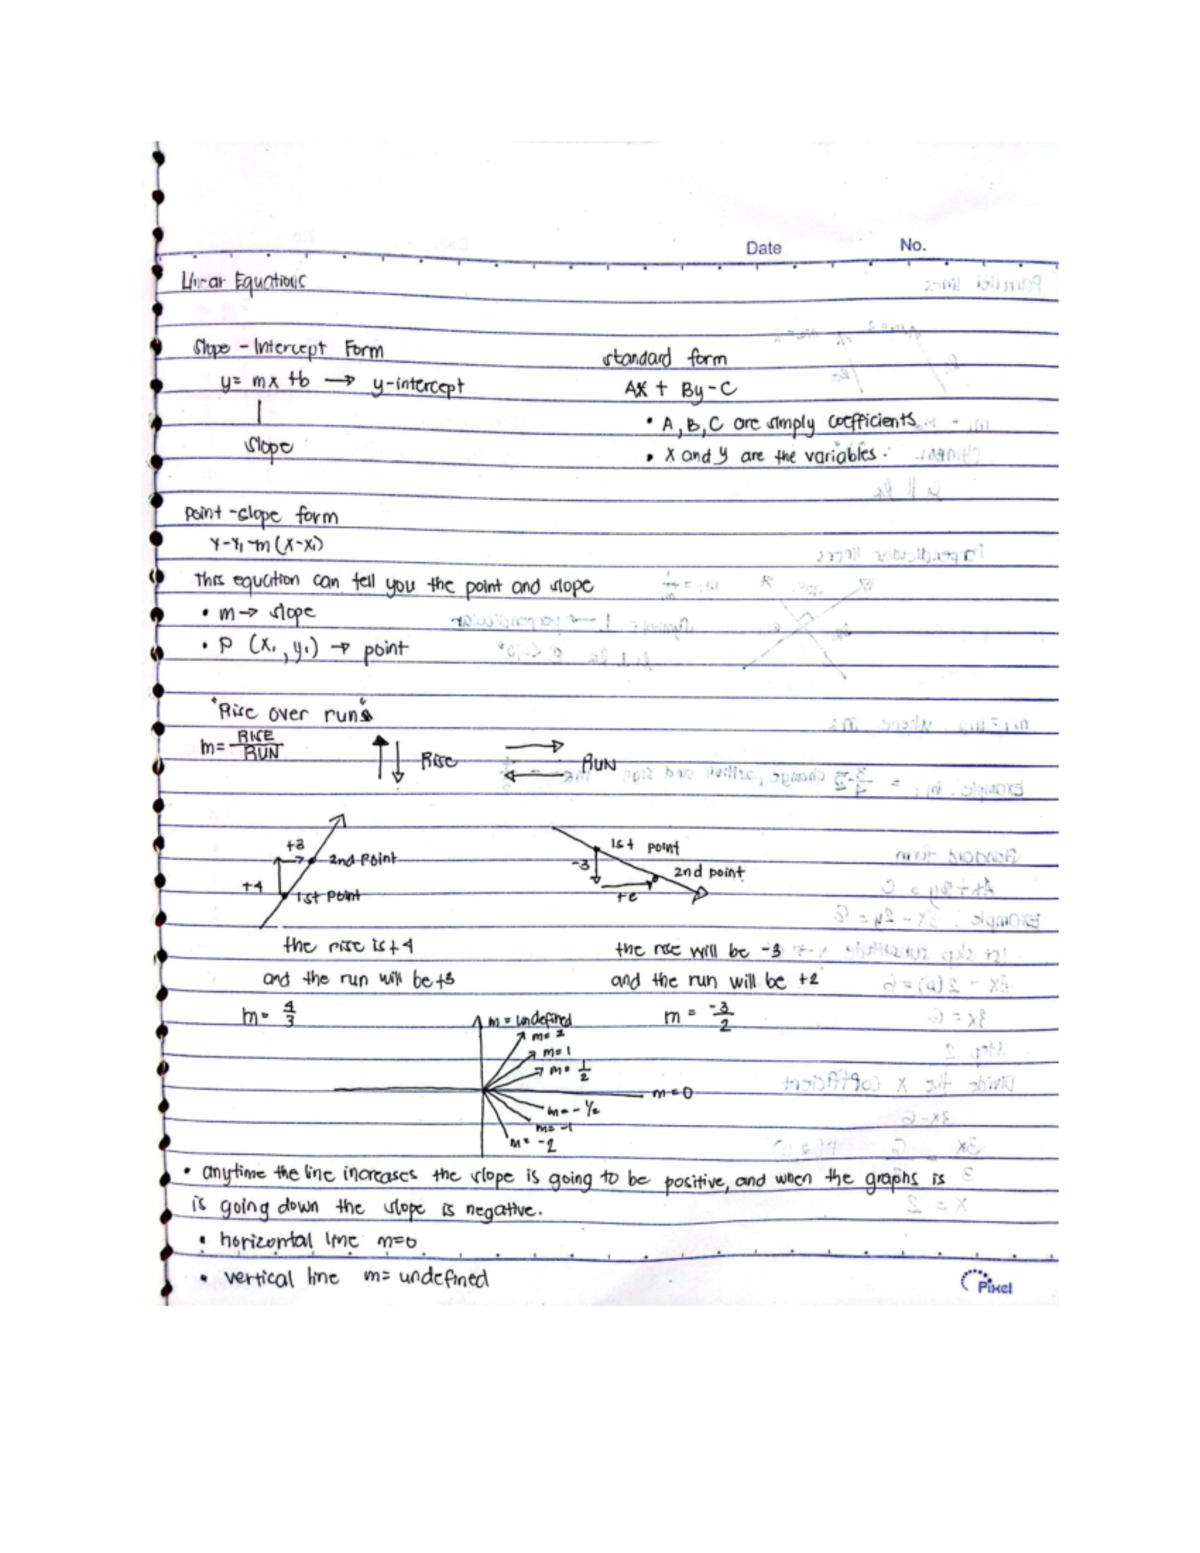 Date No.
Linear Equations
Slope - Intercept Form
y= mx +b → y-intercept
slope
standard form
Ax + By - C
• A, B, C are simply coefficients
• x and y are the variables.
Point - slope form
Y-Y₁ = m (X-X₁)
This equation can tell you the point and slope
• m → slope
• P (x₁, y₁) → point
"Rise over run"
m= RISE
RUN
Rise
RUN
+3
2nd Point
+4
1st Point
the rise is +4
and the run will be +3
m= 4
3
1st point
-3
2nd point
the rise will be -3
and the run will be +2
m = -3
2
m = undefined
m= 2
m= 1
m= 1
2
m=0
m= - 1/2
m= -1
m= -2
• anytime the line increases the slope is going to be positive, and when the graphs is
is going down the slope is negative.
• horizontal line m=0
• vertical line m= undefined
Pixel